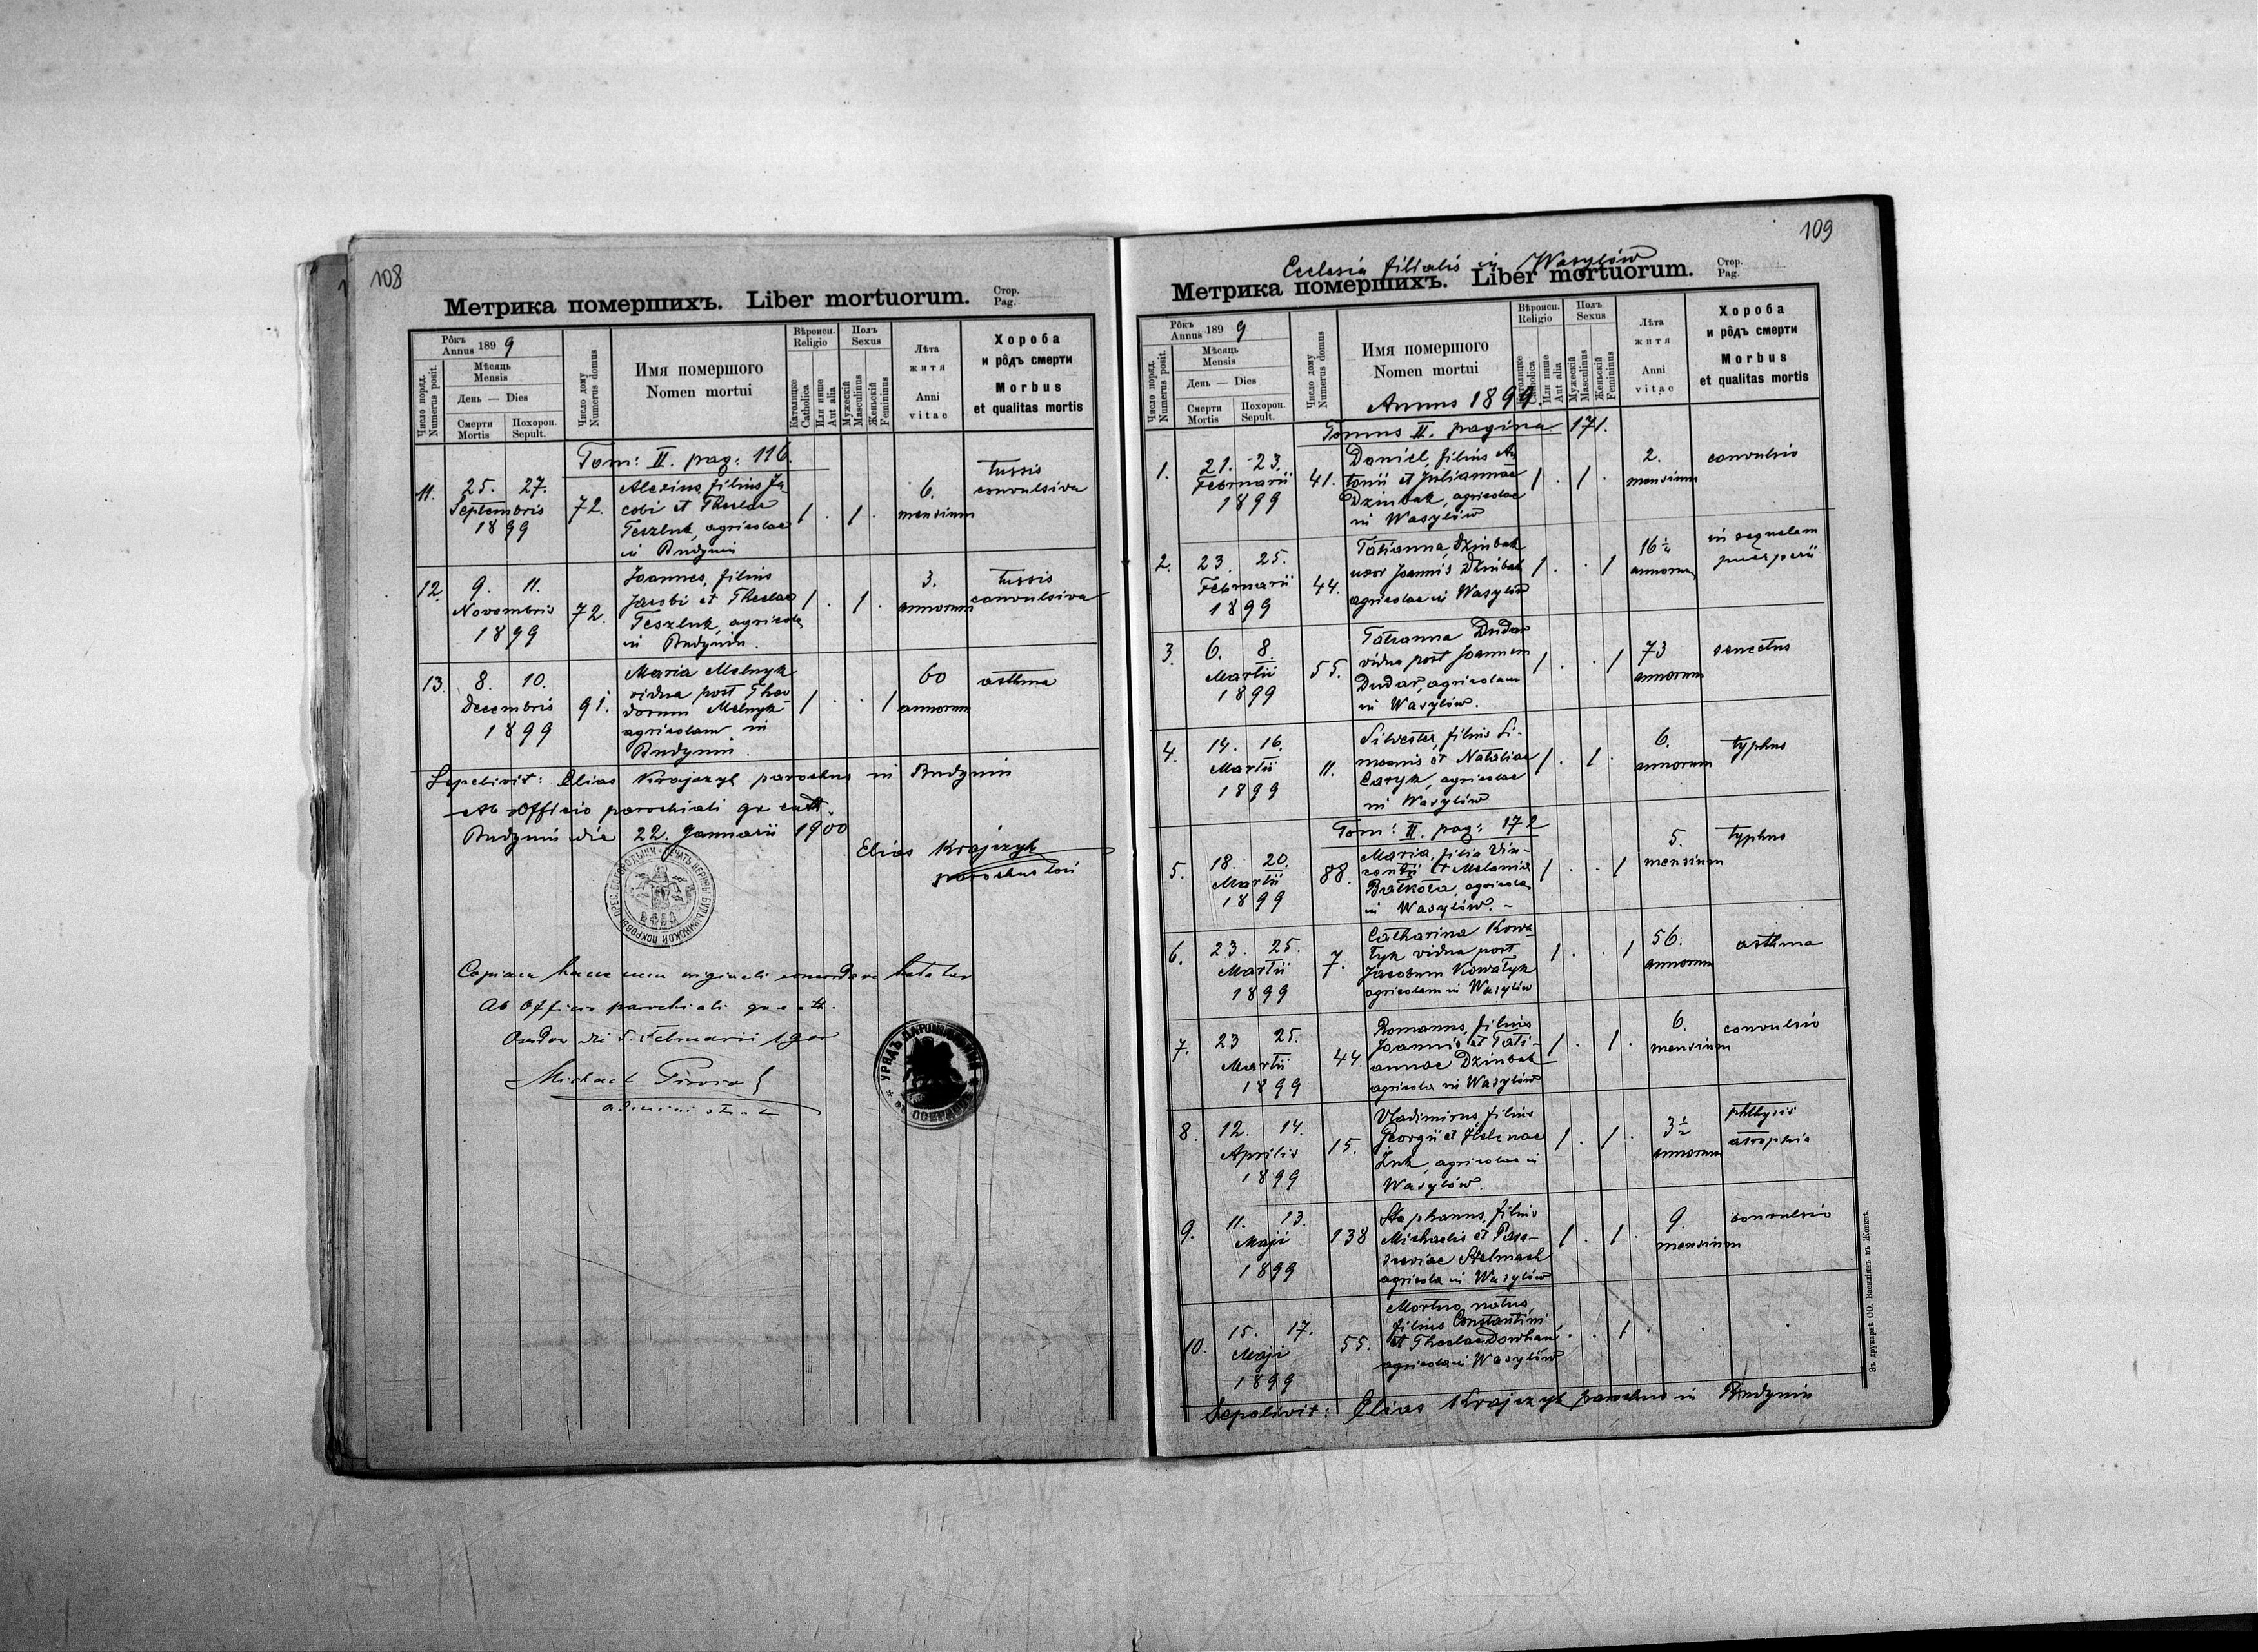 108
Метрика помершихъ. Liber mortuorum.
Стор.
Pag.
Рôкъ
Annus 1899
Мѣсяць
Mensis
День — Dies
Число поряд.
Numerus posit.
Смерти
Mortis
Похорон.
Sepult.
Число дому
Numerus domus
Имя помершого
Nomen mortui
Вѣроисп.
Religio
Католицке
Catholica
Или инше
Aut alia
Полъ
Sexus
Мужескій
Masculinus
Женьскій
Femininus
Лѣта
житя
Anni
vitae
Хороба
и рôдъ смерти
Morbus
et qualitas mortis
Tom: II. pag: 116.
11. 25. 27.
Septembris
1899
72.
Alexius, filius Ja-
cobi et Theclae
Teszluk, agricolae
in Budynin
1 . 1 .
6.
mensium
tussis
convulsiva
12. 9. 11.
Novembris
1899
72.
Joannes, filius
Jacobi et Theclae
Teszluk, agricola
in Budynin.
1 . 1 .
3.
annorum
tussis
convulsiva
13. 8. 10.
Decembris
1899
91.
Maria Melnyk
vidua post Theo-
dorum Melnyk
agricolam in
Budynin.
1 . . 1
60
annorum
asthma
Sepelivit: Elias Krajczyk parochus in Budynin
Ab Officio parochiali gr. catt.
Budynin die 22. Januarii 1900
Elias Krajczyk
parochus loci
Copiam hanc cum originali concordare testatur
Ab Officio parochiali gr. catt.
die 5. Februarii 1900
Michael
109
Ecclesia filialis in Wasylów
Метрика помершихъ. Liber mortuorum.
Стор.
Pag.
Рôкъ
Annus 1899
Мѣсяць
Mensis
День — Dies
Число поряд.
Numerus posit.
Смерти
Mortis
Похорон.
Sepult.
Число дому
Numerus domus
Имя помершого
Nomen mortui
Annus 1899.
Вѣроисп.
Religio
Католицке
Catholica
Или инше
Aut alia
Полъ
Sexus
Мужескій
Masculinus
Женьскій
Femininus
Лѣта
житя
Anni
vitae
Хороба
и рôдъ смерти
Morbus
et qualitas mortis
Tomus II. pagina 171.
1. 21. 23.
Februarii
1899
41.
Daniel, filius An-
tonii et Juliannae
Dzinbak, agricolae
in Wasylów
1 . 1 .
2.
mensium
convulsio
2. 23. 25.
Februarii
1899
44.
Tatianna Dzinbak
uxor Joannis Dzinbak
agricolae in Wasylów
1 . . 1
16½
annorum
in sequelam
puerperii
3. 6. 8.
Martii
1899
55.
Tatianna Dudar
vidua post Joannem
Dudar, agricolam
in Wasylów.
1 . . 1
73
annorum
senectus
4. 14. 16.
Martii
1899
11.
Silvester, filius Si-
meonis et Nataliae
Caryk, agricolae
in Wasylów
1 . 1 .
6.
annorum
typhus
Tom: II. pag: 172
5. 18. 20.
Martii
1899
88.
Maria, filia Vin-
centii et Melaniae
agricola
in Wasylów. -
1 . . 1
5.
mensium
typhus
6. 23. 25.
Martii
1899
7.
Catharina Kowa-
łyk vidua post
Jacobum Kowałyk
agricolam in Wasylów
1 . . 1
56.
annorum
asthma
7. 23 25.
Martii
1899
44.
Romanus, filius
Joannis et Tati-
annae Dzinbak
agricola in Wasylów
1 . 1 .
6.
mensium
convulsio
8. 12. 14.
Aprilis
1899
15.
Vladimirus, filius
Georgii et Helenae
Żuk, agricolae in
Wasylów.
1 . 1 .
3½
annorum
phthysis
9. 11. 13.
Maji
1899
138
Stephanus, filius
Michaelis et Paras-
ceviae Stelmach
agricola in Wasylów
1 . 1 .
9.
mensium
convulsio
10. 15. 17.
Maji
1899
55.
Mortuo natus,
filius Constantini
et Theclae Dowhan,
agricola in Wasylów
. . 1 . . .
Sepelivit: Elias Krajczyk parochus in Budynin
Зъ друкарнѣ ОО. Василіянъ въ Жовквѣ.